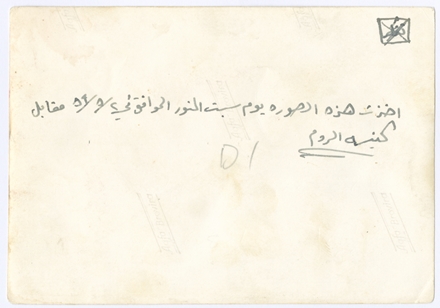 اخذت هذه الصوره يوم سبت النور الموافق مقابل
كنيسه الروم